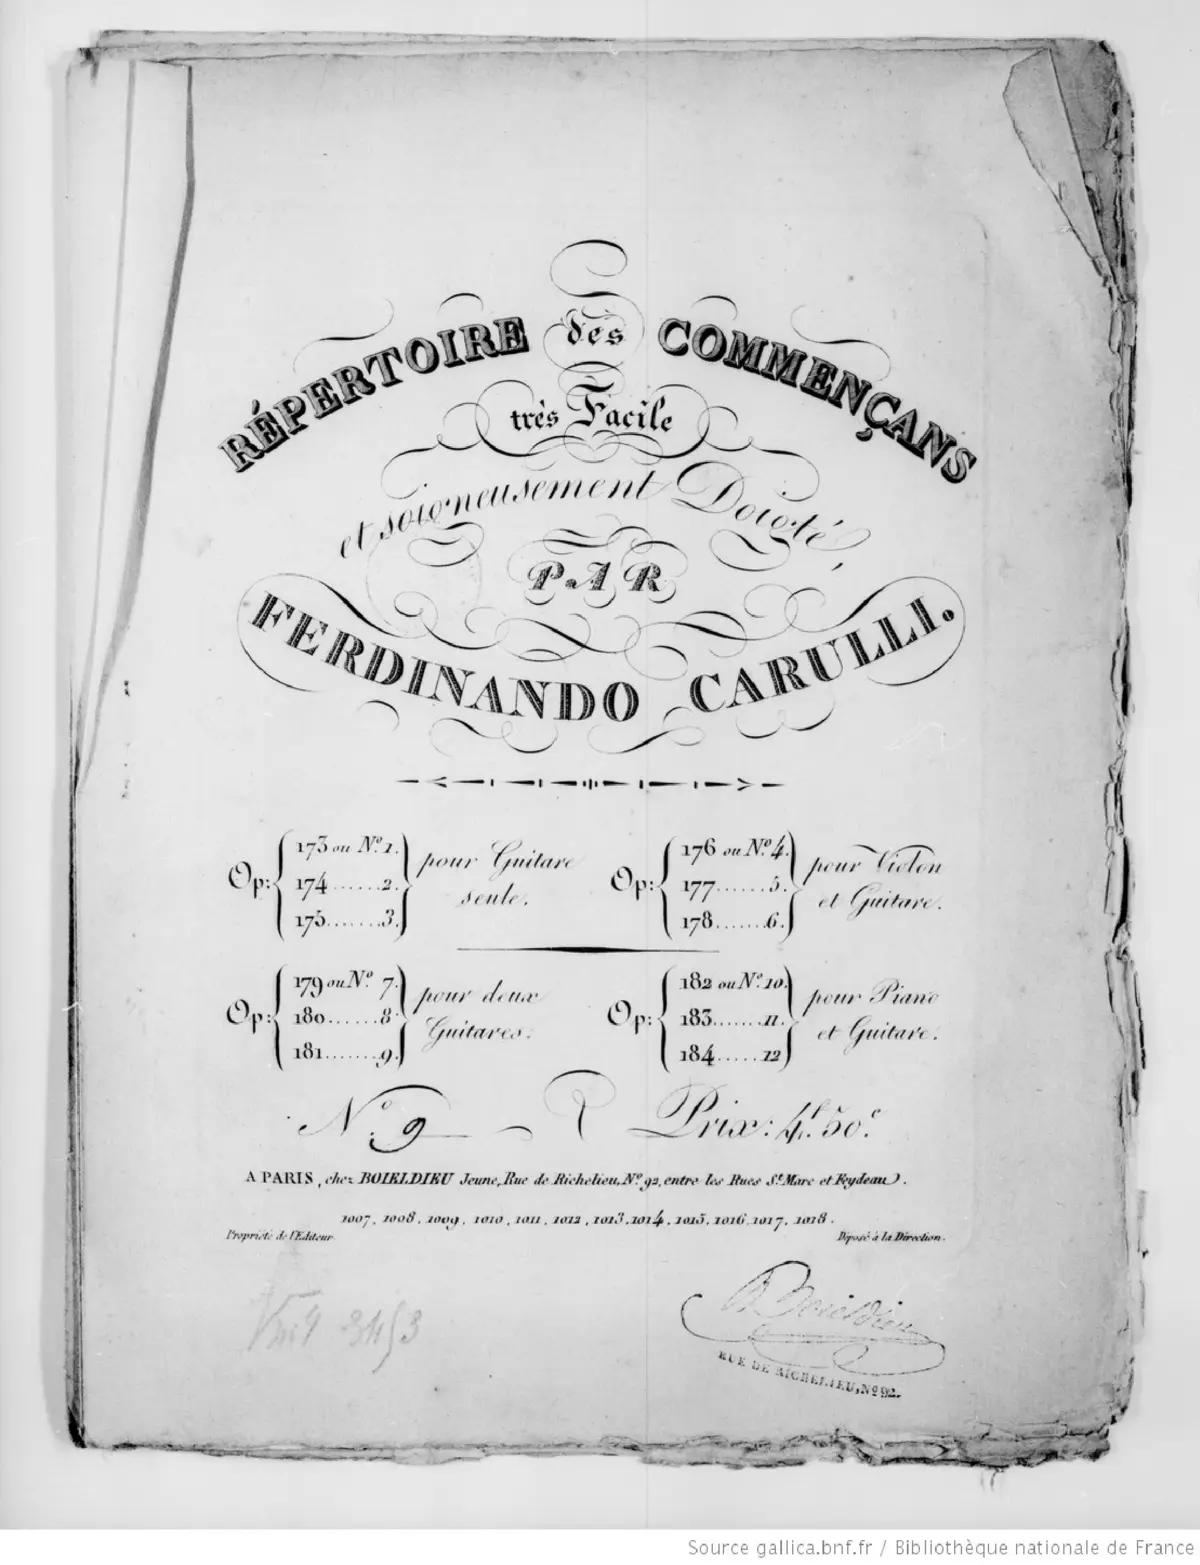 RÉPERTOIRE des COMMENÇANS
très Facile
et soigneusement Doigté,
PAR
FERDINANDO CARULLI.
Op: 173 ou Nº 1. 174......2. 175.......3. pour Guitare seule.
Op: 176 ou Nº 4. 177......5. 178.......6. pour Violon et Guitare.
Op: 179 ou Nº 7. 180......8. 181.......9. pour deux Guitares.
Op: 182 ou Nº 10. 183.......11. 184.....12 pour Piano et Guitare.
Nº 9 Prix: 4f. 50c.
A PARIS, chez BOIELDIEU Jeune, Rue de Richelieu, Nº 92, entre les Rues St. Marc et Feydeau.
1007, 1008, 1009, 1010, 1011, 1012, 1013, 1014, 1015, 1016, 1017, 1018.
Propriété de l'Editeur
Déposé à la Direction.
Boieldieu
RUE DE RICHELIEU, Nº 92.
Source gallica.bnf.fr / Bibliothèque nationale de France